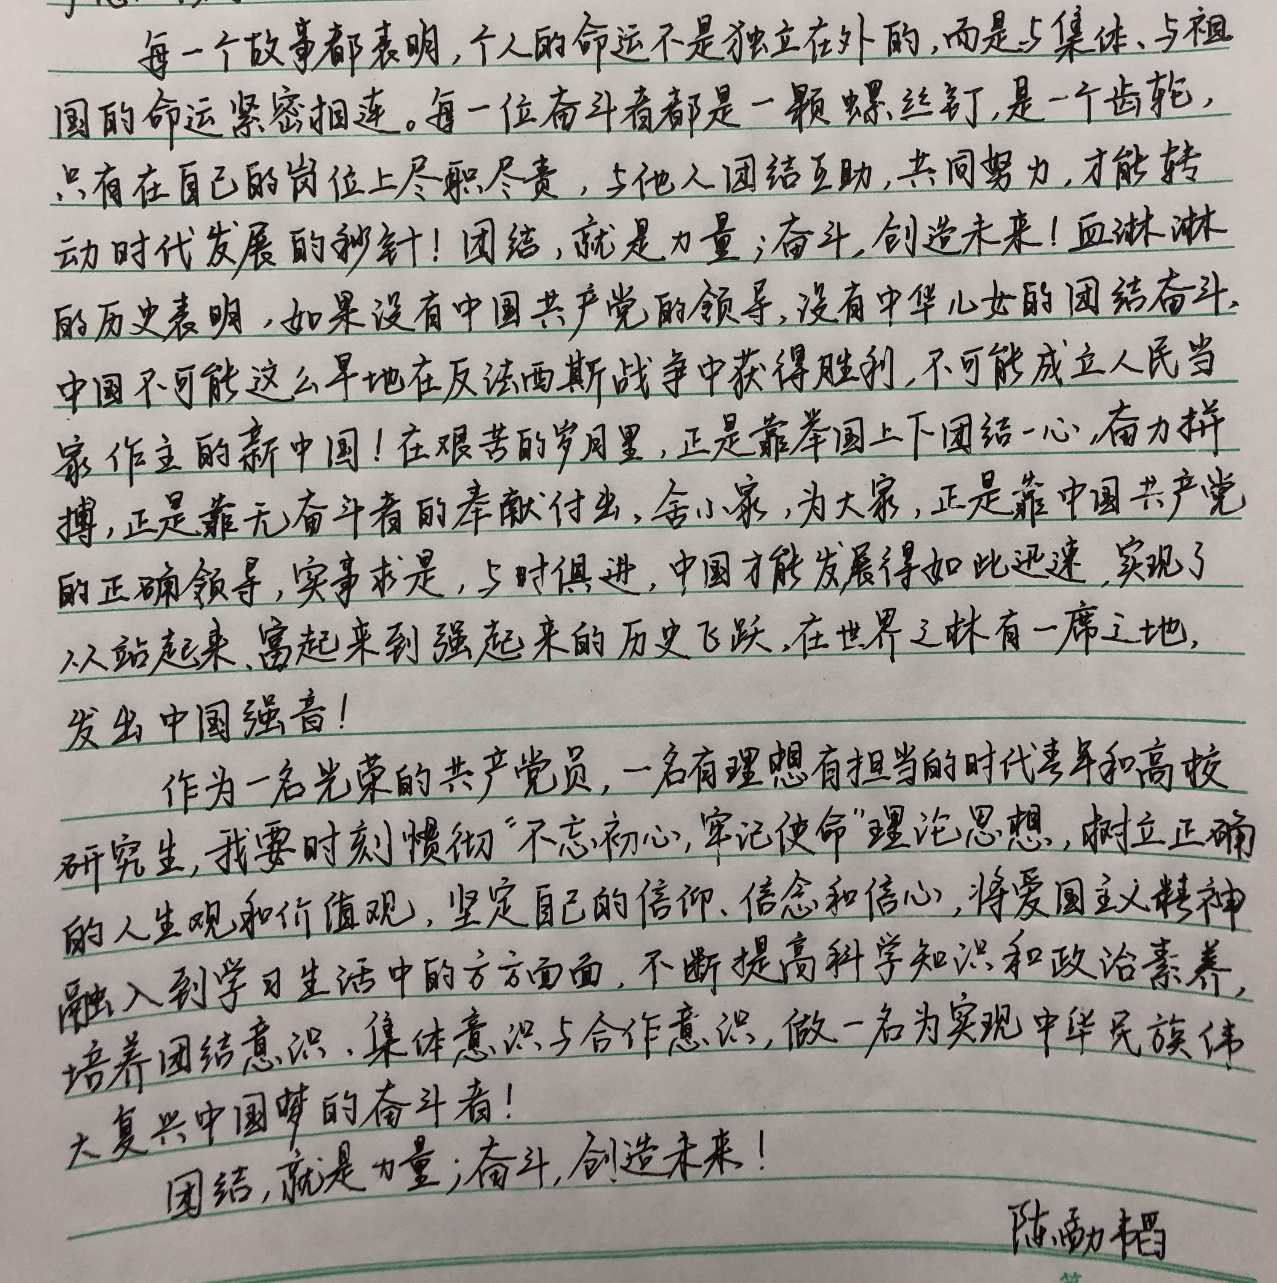 每一个故事都表明,个人的命运不是独立在外的,而是与集体、与祖
国的命运紧密相连。每一位奋斗者都是一颗螺丝钉,是一个齿轮,
只有在自己的岗位上尽职尽责,与他人团结互助,共同努力,才能转
动时代发展的秒针!团结,就是力量;奋斗,创造未来!血淋淋
的历史表明,如果没有中国共产党的领导,没有中华儿女的团结奋斗,
中国不可能这么早地在反法西斯战争中获得胜利,不可能成立人民当
家作主的新中国!在艰苦的岁月里,正是靠举国上下团结一心,奋力拼
搏,正是靠无奋斗者的奉献付出,舍小家,为大家,正是靠中国共产党
的正确领导,实事求是,与时俱进,中国才能发展得如此迅速,实现了
从站起来、富起来到强起来的历史飞跃,在世界之林有一席之地,
发出中国强音!
作为一名光荣的共产党员,一名有理想有担当的时代青年和高校
研究生,我要时刻惯彻“不忘初心,牢记使命”理论思想,树立正确
的人生观和价值观,坚定自己的信仰、信念和信心,将爱国主义精神
融入到学习生活中的方方面面,不断提高科学知识和政治素养,
培养团结意识、集体意识与合作意识,做一名为实现中华民族伟
大复兴中国梦的奋斗者!
团结,就是力量;奋斗,创造未来!
陈勐韬